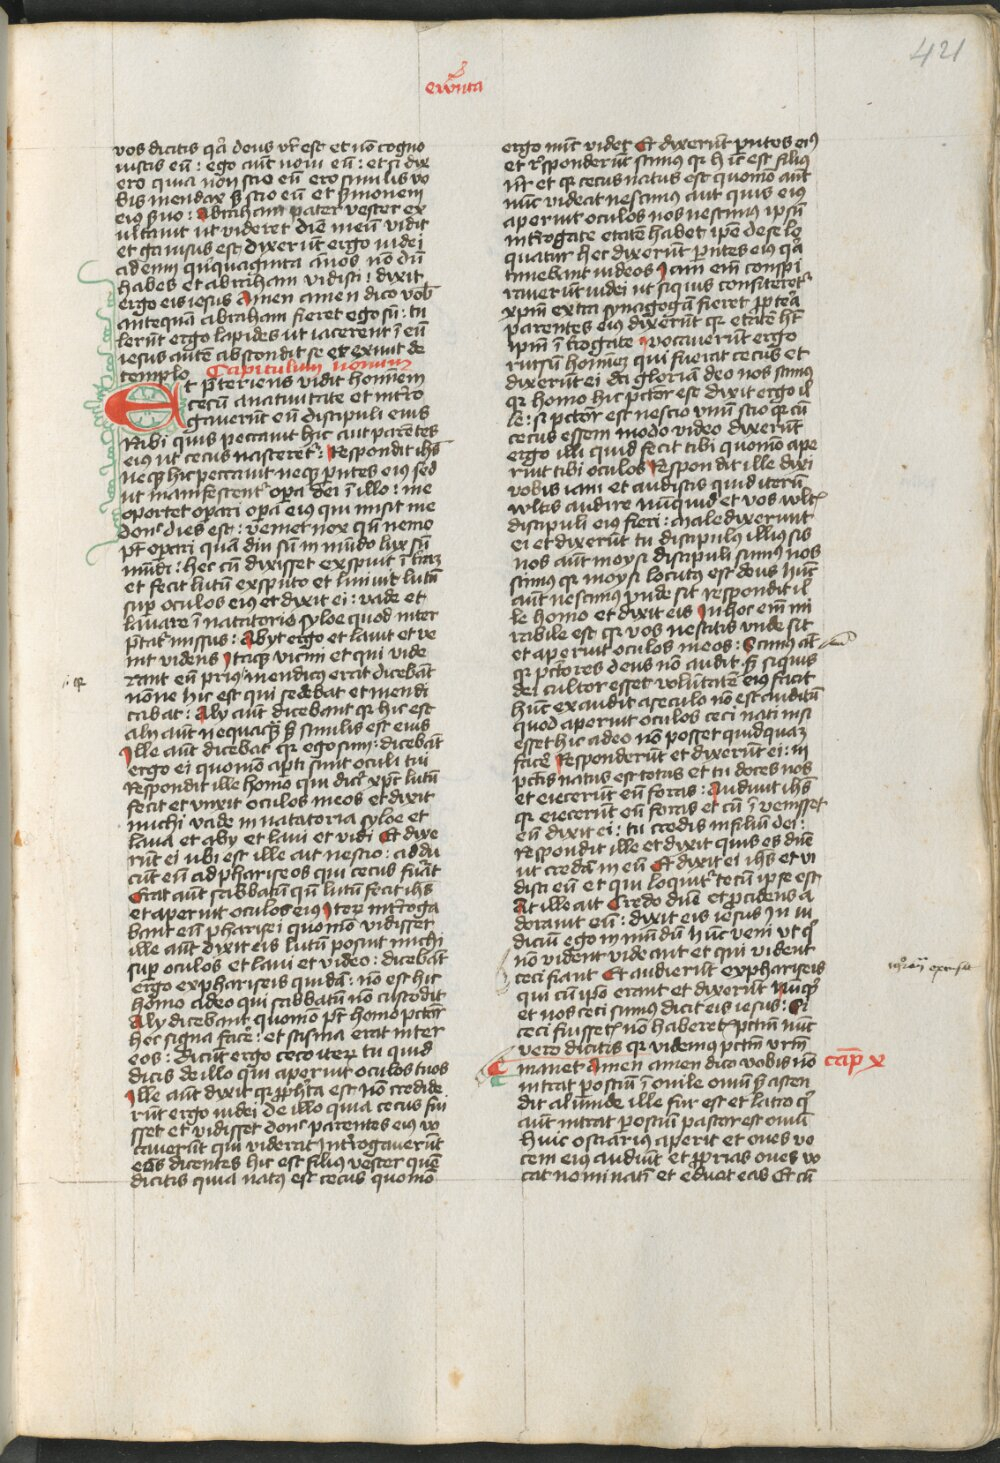 421
ewnta
vos dicitis qā deus vr̄ est et nō cogno
uistis eū : ego aūt noui eū : et si dix
ero quia non scio eū ero similis vo
bis mendax s̄ scio eū et s̄monem
eiꝰ s̄uo : abraham pater vester ex
ultauit ut videret diē meū vidit
et gauisus est dixerūt ergo iudei
ad eum qū'quaginta ānos nō dū
habes et abraham vidisti : dixit
ergo eis iesus Amen amen dico vob
antequā abraham fieret ego sū : tu
lerūt ergo lapides ut iacerent ī eū
iesus autē abscondit se et exiuit de
templo Capitulum nonum
Et p̄teriens vidit hominem
cecū a natiuitate et intro
gauerūt eū discipuli eius
Rabi quis peccauit hic aut parētes
eiꝰ ut cecus nasceretʳ : Respondit ihs̄
neqꝫ hic peccauit neqꝫ pn̄tes eiꝰ sed
ut manifestentʳ opa dei ī illo : me
oportet opari opa eiꝰ qui misit me
donc dies est : venīet nox qn̄ nemo
pt̄ opari quā diu sū in mūdo lux sū
mūdi : hec cū dixisset expuit ī trāꝫ
et fecit lutū ex sputo et liniuit lutū
sup oculos eiꝰ et dixit ei : vade et
lauare ī natatorio syloe quod inter
p̄tatʳ missus : Abyt ergo et lauit et ve
nit videns Itaqꝫ vicini et qui vide
: qꝛ
rant eū priꝰ mendicꝰ erat dicebāt
nonne hic est qui sedebat et mendi
cabat : Aly aūt dicebant qꝛ hic est
aly aūt nequaqꝫ s̄ similis est eius
Ille aūt dicebat qꝛ ego sum : dicebāt
ergo ei quomō aperti sunt oculi tui
Respondit ille homo qui dicʳ xp̄c lutū
fecit et vnxit oculos meos et dixit
michi vade in natatoria syloe et
laua et aby et laui et vidi Et dixe
rūt ei ubi est ille ait nescio : addu
cūt eū ad phariseos qui cecus fuāt
Erat aūt sabbatū qn̄ lutū fecit ihs̄
et aperuit oculos eiꝰ Iterꝫ intˀroga
bant eū pharisei quomō vidisset
ille aūt dixit eis lutū posuit michi
sup oculos et laui et video : dicebāt
ergo ex phariseis quidā : nō est hic
homo a deo qui sabbatū nō custodit
Aly dicebant quomō pt̄ homo pctōr
hec signa facē : et scisma erat inter
eos : dicūt ergo ceco iterꝫ tu quid
dicis de illo qui aperuit oculos tuos
Ille aūt dixit qꝛ pph̄ta est nō credide
rūt ergo iudei de illo quia cecus fui
sset et vidisset donc parentes eiꝰ vo
cauerūt qui viderat Intˀrogauerūt
eos dicentes hic est filiꝰ vester quē
dicitis quia natꝰ est cecus quomō
ergo nūc videt Et dixerūt pn̄tes eiꝰ
et rˢponderūt scimꝰ qꝛ hic est filiꝰ
nr̄ et qꝛ cecus natus est quomō aūt
nūc videat nescimꝰ aut quis eiꝰ
aperuit oculos nos nescimꝰ ipsū
intˀrogate etatē habet ipē de se lo
quatur hec dixerūt pn̄tes eiꝰ qā
timebant iudeos Iam em̄ conspi
rauerūt iudei ut si quis confiteretʳ
xpm̄ extra synagogā fieret ppˀtea
parentes eiꝰ dixerūt qꝛ etatē hꝫ
ipm̄ ītrogate : vocauerūt ergo
rursū hominē qui fuerat cecus et
dixerūt ei da gloriā deo nos scimꝰ
qꝛ homo hic pctōr est dixit ergo il
le : si pctōr est nescio vnū scio qꝛ cū
cecus essem modo video dixerūt
ergo illi quid fecit tibi quomō ape
ruit tibi oculos Respondit ille dixi
vobis iam et audistis quid iterū
vultis audire nūquid et vos vultˢ
discipuli eiꝰ fieri : maledixerunt
ei et dixerūt tu discipulꝰ illiꝰ sis
nos aūt moysi discipuli sumꝰ nos
scimꝰ qꝛ moysi locutꝰ est deus hūc
aūt nescimꝰ vnde sit respondit il
le homo et dixit eis In hoc em̄ mi
rabile est qꝛ vos nescitis vnde sit
et aperuit oculos meos : Scimꝰ aūt
qꝛ pctōres deus nō audit s̄ si quis
dei cultor esset volūtatē eiꝰ facit
hūc exaudit a seculo nō est auditū
quod aperuit oculos ceci nati nisi
esset hic a deo nō posset quidquaꝫ
facē Responderūt et dixerūt ei : in
pctīs natus es totus et tu doces nos
et eiecerūt eū foras : Audiuit ihs̄
qꝛ eiecerūt eū foras et cū īvenisset
eū dixit ei : tu credis in filiū dei :
Respondit ille et dixit quis es dn̄e
ut credā in eū Et dixit ei ihs̄ et vi
disti eū et qui loquitʳ tecū ipse est
At ille ait Credo dn̄e et pcidens a
dorauit eū : dixit eis iesus In iu
diciū ego in mūdū hūc veni ut q̄
nō vident videant et qui vident
ceci fiant Et audierūt ex phariseis
qui cū ipo erant et dixerūt Nūqꝫ
et nos ceci sumꝰ dicit eis iesus : Si
ceci fuissetˢ nō haberetˢ pctm̄ nūc
vero dicitis qꝛ videmꝰ pctm̄ vrm̄
manet Amen amen dico vobis nō
cap̄ x
intrat p ostiū ī ouile ouiū s̄ ascen
dit aliunde ille fur est et latro q̄
aūt intrat p ostiū pastor est ouiū
huic ostiarius aperit et oues vo
cem eiꝰ audiūt et pprias oues vo
cat nominatī et educit eas Et cū